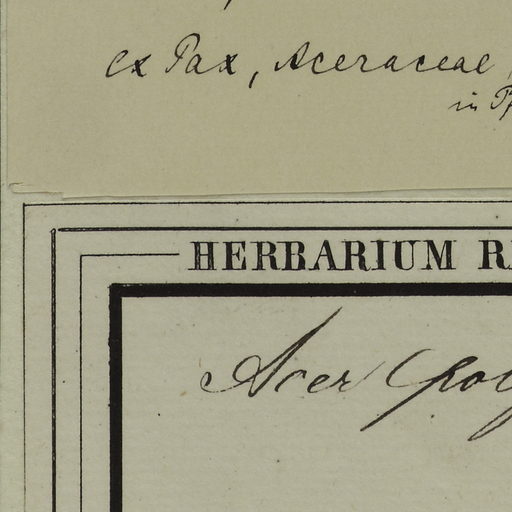 ex Pax, Aceraceae,
in
HERBARIUM
Acer